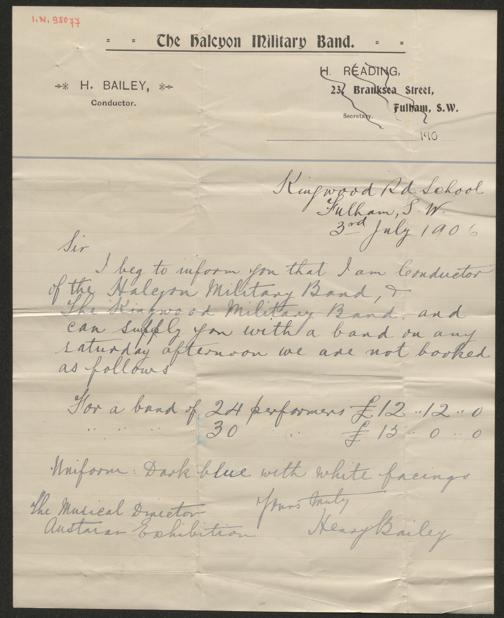 I.N. 98077
The Halcyon Military Band.
H. BAILEY,
Conductor.
H. READING,
23, Branksea Street,
Fulham, S.W.
Secretary.
190
Kingwood Rd School
Fulham, S.W.
3rd July 1906
Sir
I beg to inform you that I am Conductor
of the Halcyon Military Band, &
The Kingwood Military Band, and
can supply you with a band on any
saturday afternoon we are not booked
as follows
For a band of 24 performers £12 .. 12 .. 0
" " " " 30 " £ 15 .. 0 .. 0
Uniform. Dark blue with white facings
Yours truly
Henry Bailey
The Musical Director
Austrian Exhibition